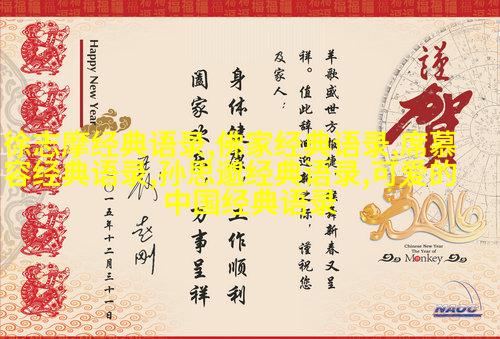 徐志摩经典语录,佛家经典语录,席慕
容经典语录,孙思邈经典语录,可爱的
中国经典语录
謹
贺
2016
Chinese New Year
The Year of
Monkey
NAOC
羊歌盛世方
新春又呈
祥。值此辞旧迎新
谨祝您
及家人：
身体健康
工作顺利
阖家欢
万事呈祥
一五年十二月三十一日
Happy New Year